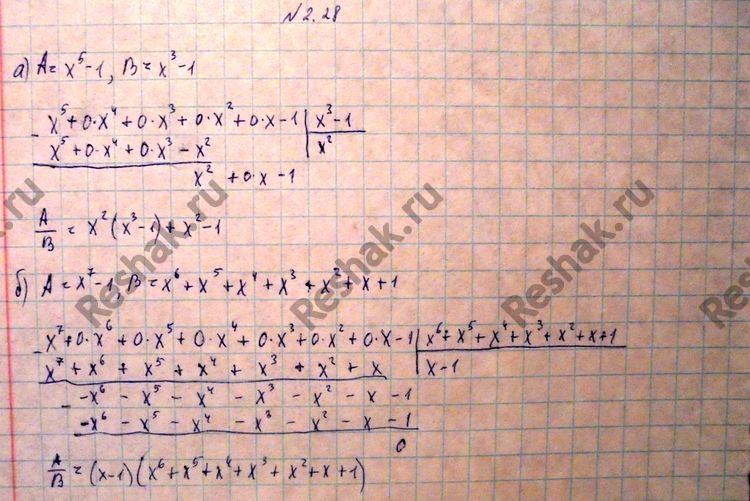 № 2.28
а) A = x⁵ - 1, B = x³ - 1
- x⁵ + 0·x⁴ + 0·x³ + 0·x² + 0·x - 1 | x³ - 1
x⁵ + 0·x⁴ + 0·x³ - x² | x²
x² + 0·x - 1
A/B = x²(x³ - 1) + x² - 1
б) A = x⁷ - 1, B = x⁶ + x⁵ + x⁴ + x³ + x² + x + 1
- x⁷ + 0·x⁶ + 0·x⁵ + 0·x⁴ + 0·x³ + 0·x² + 0·x - 1 | x⁶ + x⁵ + x⁴ + x³ + x² + x + 1
x⁷ + x⁶ + x⁵ + x⁴ + x³ + x² + x | x - 1
- -x⁶ - x⁵ - x⁴ - x³ - x² - x - 1
-x⁶ - x⁵ - x⁴ - x³ - x² - x - 1
0
A/B = (x-1)(x⁶ + x⁵ + x⁴ + x³ + x² + x + 1)
Reshak.ru
Reshak.ru
Reshak.ru
Reshak.ru
Reshak.ru